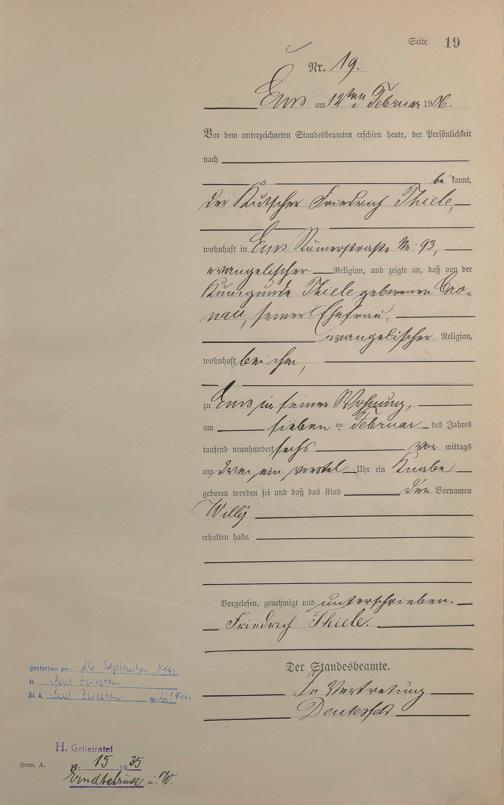 Seite 19
Nr. 19.
Ems am 12ten Februar 1906.
Vor dem unterzeichneten Standesbeamten erschien heute, der Persönlichkeit
nach
be kannt,
der Kutscher Friedrich Thiele,
wohnhaft in Ems Römerstraße Nr. 93,
evangelischer Religion, und zeigte an, daß von der
Kunigunde Thiele geborenen Cro-
nau, seiner Ehefrau,
evangelischer Religion,
wohnhaft bei ihm,
zu Ems in seiner Wohnung,
am sieben ten Februar des Jahres
tausend neunhundert sechs vor mittags
um drei ein viertel Uhr ein Knabe
geboren worden sei und daß das Kind den Vornamen
Willy
erhalten habe.
Vorgelesen, genehmigt und unterschrieben.
Friedrich Thiele.
Der Standesbeamte.
In Vertretung
gestorben am: 26. September
in Bad Zwesten
St. A. Bad Zwesten Nr.
H. Geheiratet
Nr. 15 1935
Erndtebrück i. W.
Heim. A.